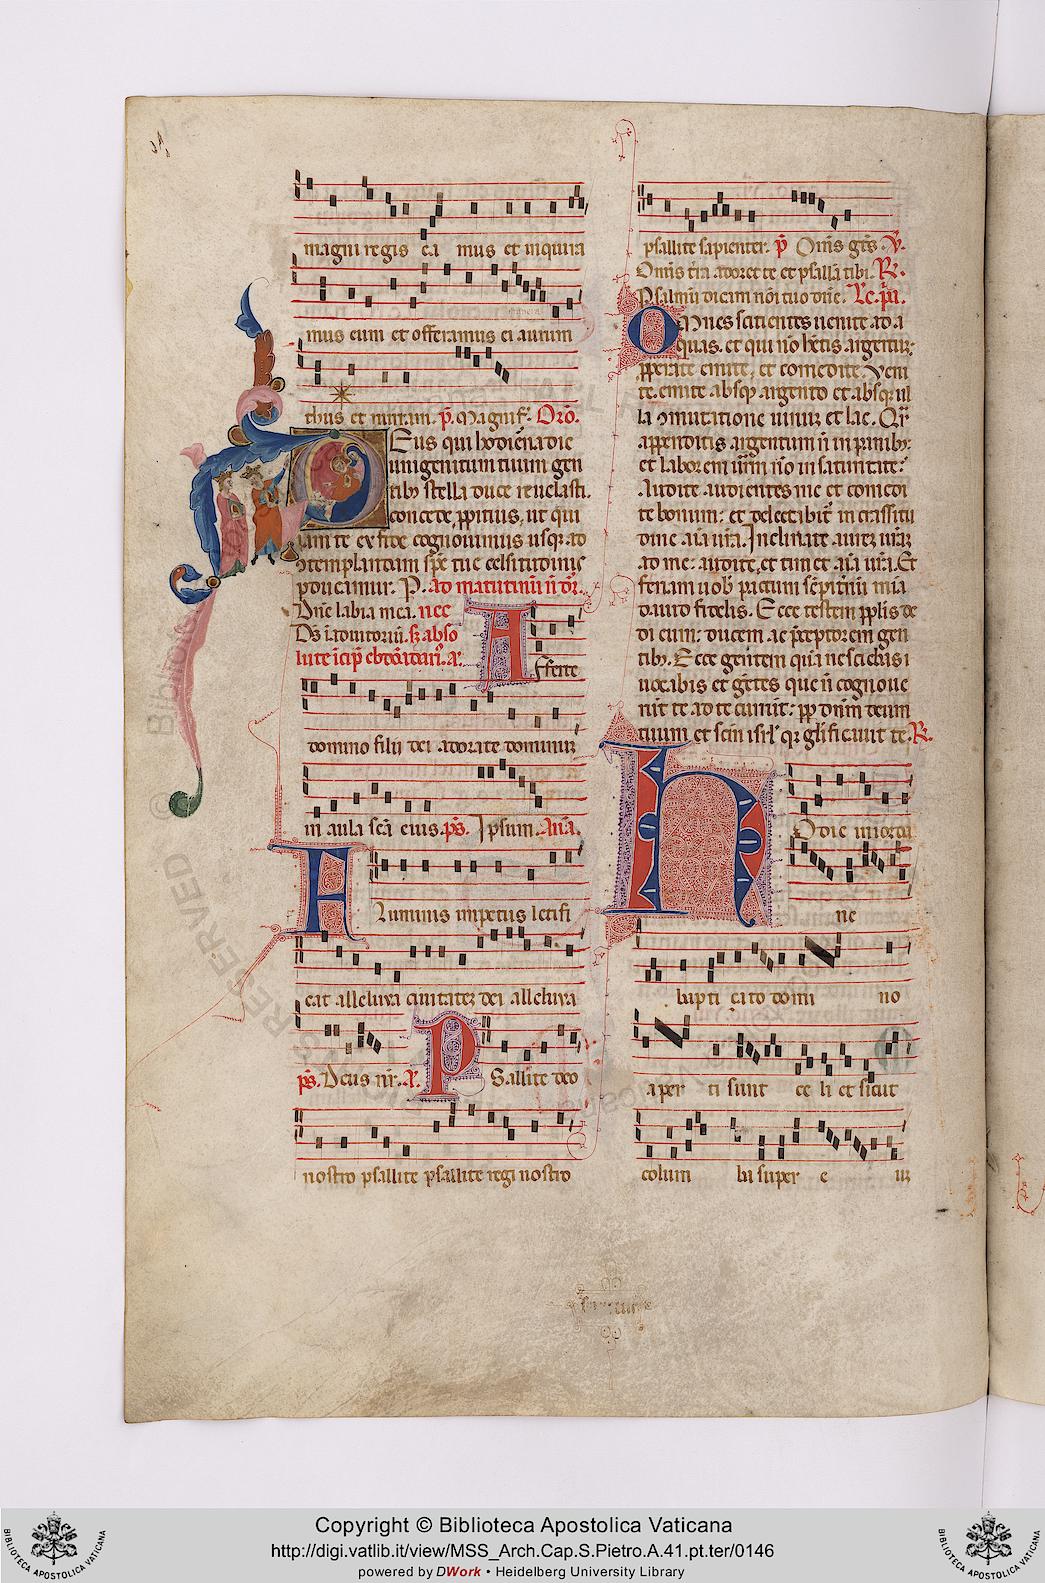 magni regis ea mus et inquira
mus eum et offeramus ei aurum
thus et mirram. p̄. Magnif̄. Orō.
Deus qui hodierna die
unigenitum tuum gen
tibꝫ stella duce revelasti.
concede ꝓpitius, ut qui
iam te ex fide cognovimus usqꝫ ad
ꝯtemplandam spēm tue celsitudinis
ꝑducamur. P. ad matutinū
Dn̄e labia mea. nec
Ds̄ ī adiutoriū. sꝫ abso
lute
Afferte
domino filii dei adorate dominum
in aula scā eius. p̄s. Ipsum. Añā.
Fluminis impetus letifi
cat alleluya civitatem dei alleluya
p̄s. Deus nr̄. A. Psallite deo
nostro psallite psallite regi nostro
psallite sapienter. p̄ Om̄s gn̄s. V.
Om̄is t̄ra adoret te et psallat tibi. R.
Psalmū dicam nōi tuo dn̄e. Lc. p̄ā.
Omnes sitientes venite ad a
quas. et qui nō hētis argentum:
ꝓperate emite, et comedite. Veni
te. emite absqꝫ argento et absqꝫ ul
la ꝯmutatione vinum et lac. Qr̄
appenditis argentum nō in panibꝫ:
et laborem vr̄m nō in saturitate:
Audite audientes me et comedi
te bonum: et delectabit̄ in crassitu
dine aīa vrā. Inclinate aurem vrām
ad me. audite, et vivet aīa vrā. Et
feriam vobꝫ pactum sēpit̄nū mīa
david fidelis. Ecce testem ppl̄is de
di eum: ducem ac p̄ceptorem gen
tibꝫ. Ecce gentem quā nesciebas
vocabis et gentes que nō cognove
runt te ad te current: ꝓp dn̄m deum
tuum et scm̄ isrl̄ qꝫ glīficavit te. R.
Hodie in iorda
ne
bapti çato domi no
aper ti sunt ce li et sicut
colum ba super e um
Copyright © Biblioteca Apostolica Vaticana
http://digi.vatlib.it/view/MSS_Arch.Cap.S.Pietro.A.41.pt.ter/0146
powered by DWork • Heidelberg University Library
BIBLIOTECA APOSTOLICA VATICANA
BIBLIOTECA APOSTOLICA VATICANA